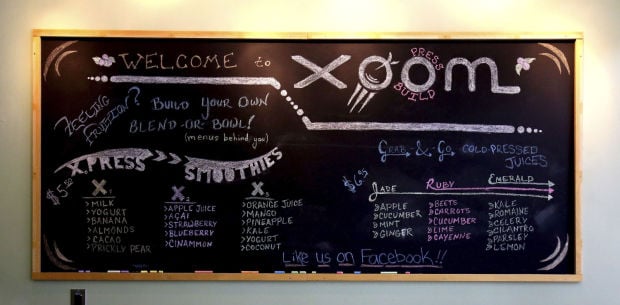 WELCOME to XOOM
PRESS
BUILD
FEELING
FRUITION?
BUILD YOUR OWN
BLEND-OR-BOWL!
(menus behind you)
X.PRESS >>> SMOOTHIES
$5.50
X1
>MILK
>YOGURT
>BANANA
>ALMONDS
>CACAO
>PRICKLY PEAR
X2
>APPLE JUICE
>AÇAI
>STRAWBERRY
>BLUEBERRY
>CINAMMON
X3
>ORANGE JUICE
>MANGO
>PINEAPPLE
>KALE
>YOGURT
>COCONUT
GRAB-&-GO COLD-PRESSED
JUICES
$6.95
JADE
>APPLE
>CUCUMBER
>MINT
>GINGER
RUBY
>BEETS
>CARROTS
>CUCUMBER
>LIME
>CAYENNE
EMERALD
>KALE
>ROMAINE
>CELERY
>CILANTRO
>PARSLEY
>LEMON
LIKE US ON FACEBOOK!!